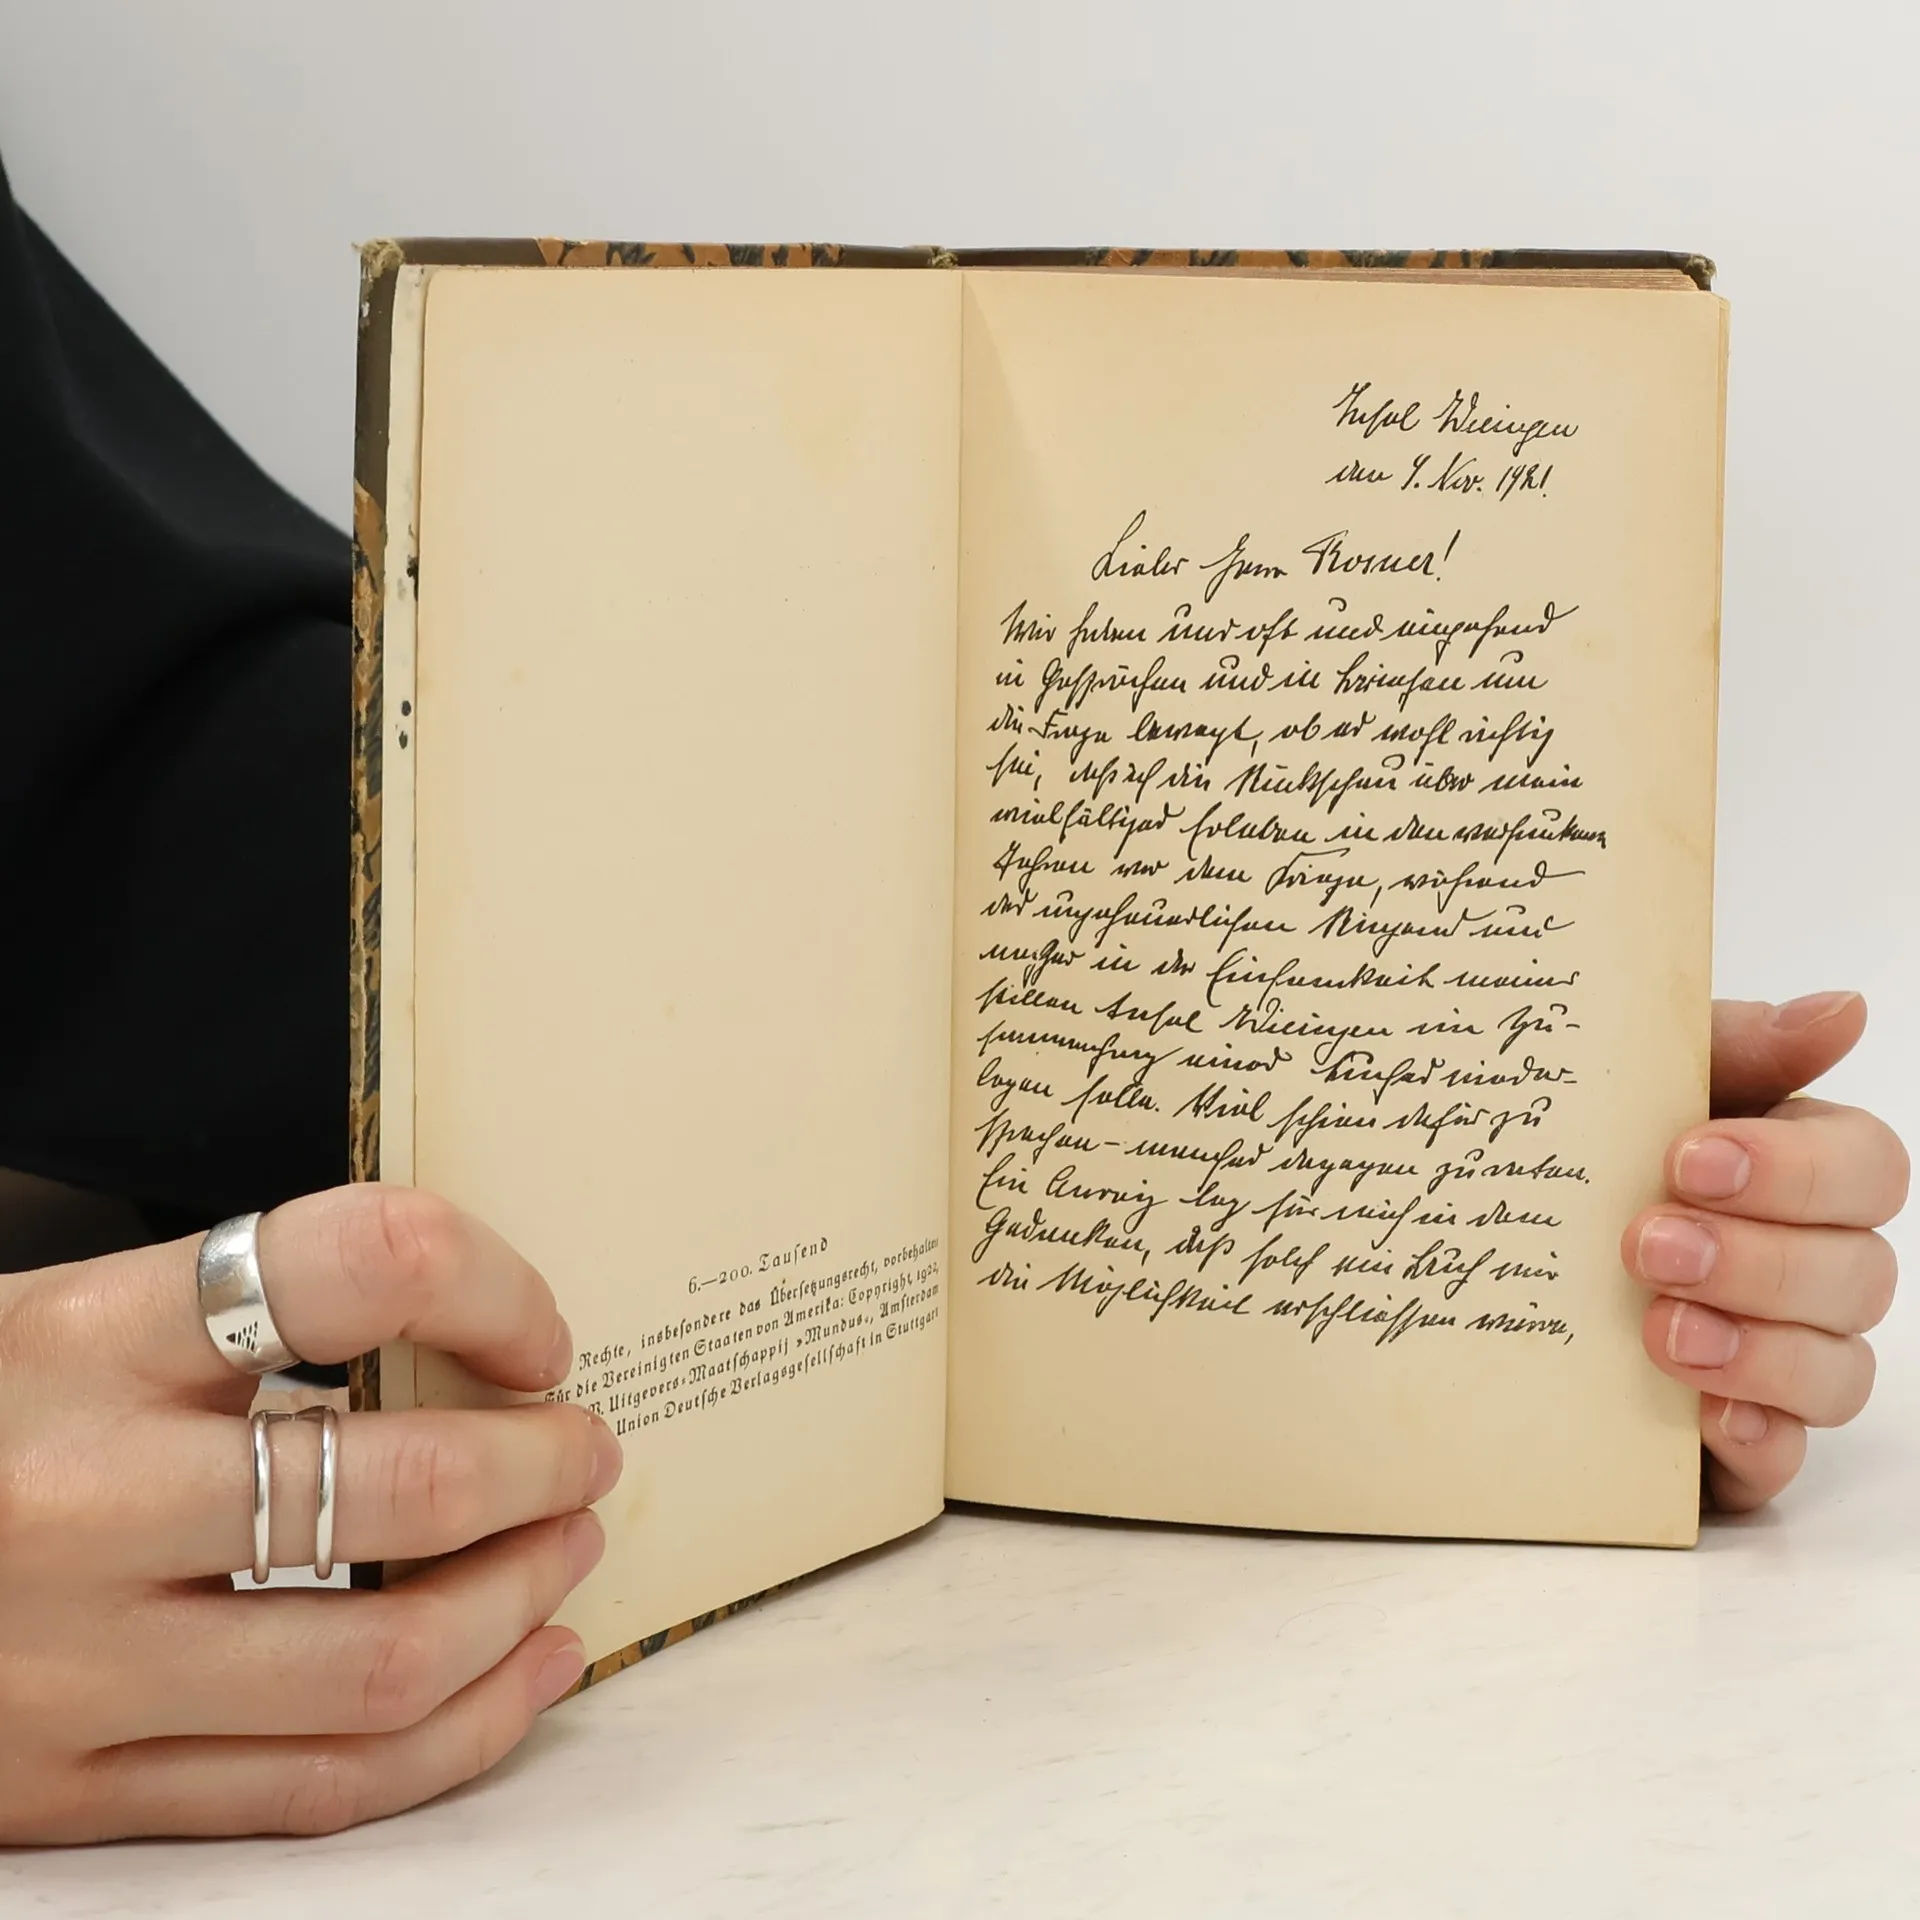 6.—200. Tausend
Rechte, insbesondere das Übersetzungsrecht, vorbehalten
Für die Vereinigten Staaten von Amerika: Copyright, 1922,
V. Uitgevers-Maatschappij »Mundus«, Amsterdam
Union Deutsche Verlagsgesellschaft in Stuttgart
Insel Wieringen
den Nov. 1921.
Lieber Herr Rosner!
Wir haben uns oft und eingehend
in Gesprächen und in Briefen um
die Frage bewegt, ob es wohl richtig
sei, daß ich die Rückschau über mein
vielfältiges Erleben in den versunkenen
Jahren vor dem Kriege, während
des ungeheuerlichen Ringens und
nachher in der Einsamkeit meiner
stillen Insel Wieringen im Zu-
sammenhang eines Buches nieder-
legen solle. Viel schien dafür zu
sprechen – manches dagegen zu raten.
Ein Anreiz lag für mich in dem
Gedanken, daß solch ein Buch mir
die Möglichkeit erschliessen würde,